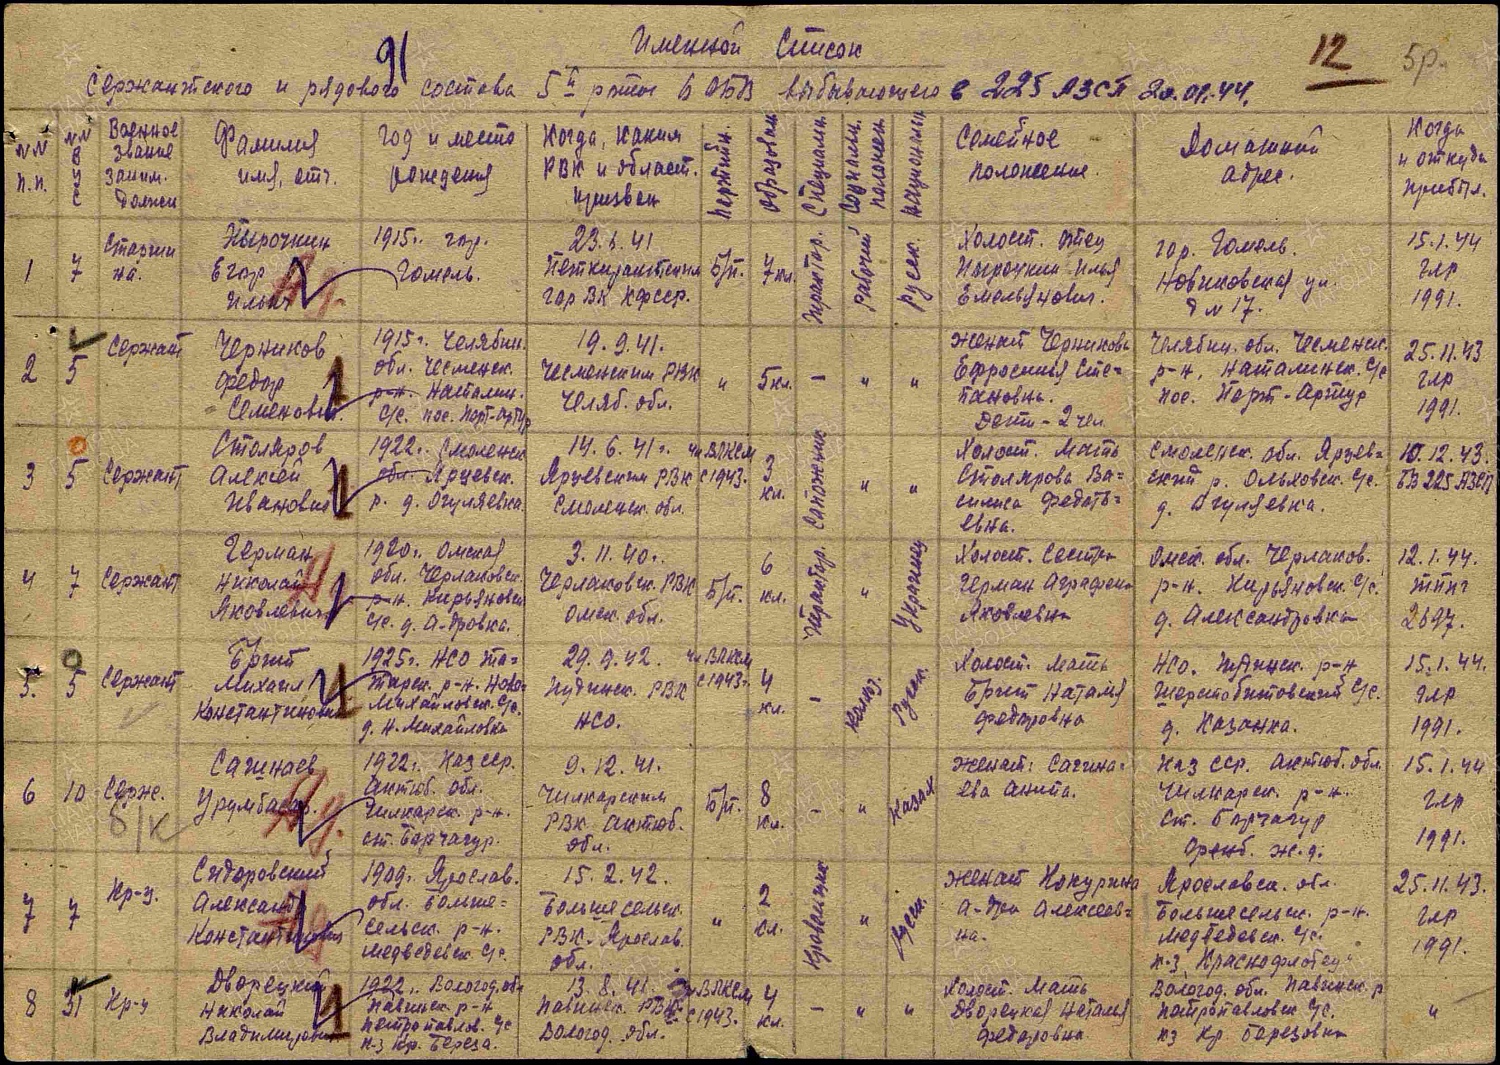 Именной Список
91
12
5р.
Сержантского и рядового состава 5й роты 6 ОБВ выбывающего в 225 АЗСП 20.01.44.
NN п.п.
NN ВУС
Военное звание заним. должн
Фамилия имя, отч.
Год и место рождения
Когда, каким РВК и област. призван
Партийн.
Образован
Специальн.
Социальн. положен.
Национальн
Семейное положение.
Домашний адрес.
Когда и откуда прибыл.
1
7
Старши на.
Егор
1915г. гор. Гомель.
23. 41
гор ВК КФССР.
Б/п.
7 кл.
Рабочий
Русск.
Холост. Отец
Илья
Емельянович.
гор. Гомель.
Новиковская ул.
д N 17.
15.1.44
глр
1991.
2
5
Сержант
Черников
Федор
Семенович
1915г. Челябин.
обл. Чесменск.
р-н. Наталин.
с/с. пос. Порт-Артур
19.9.41.
Чесменским РВК
Челяб. обл.
"
5 кл.
-
"
"
Женат Черникова
Ефросинья Сте-
пановна.
Дети - 2 чел.
Челябин. обл. Чесменск.
р-н. Наталинск. с/с
пос. Порт-Артур
25.11.43
глр
1991.
3
5
Сержант
Столяров
Алексей
Иванович
1922г. Смоленск
обл. Ярцевск.
р. д. Огуляевка
14.6.41г.
Ярцевским РВК
Смоленск. обл.
чл ВЛКСМ
с 1943.
3 кл.
Сапожник
"
"
Холост. Мать
Столярова Ва-
силиса Федоть-
евна.
Смоленск. обл. Ярцев-
ский р. Ольховск. с/с.
д. Огуляевка.
10.12.43.
БВ 225 АЗСП
4
7
Сержант
Герман
Николай
Яковлевич
1920г. Омская
обл. Черлаковск.
р-н. Кирьяновск
с/с. д. А-дровка.
3.11.40г.
Черлаковск. РВК
Омск. обл.
Б/п.
6 кл.
"
Украинец
Холост. Сестра
Герман Аграфена
Яковлевна
Омск. обл. Черлаков.
р-н. Кирьяновск. с/с.
д. Александровка
12.1.44.
ттпг
2697.
5.
5
Сержант
Бригт
Михаил
Константинович
1925г. НСО Та-
тарск. р-н. Ново-
Михайловск. с/с.
д. Н. Михайловка
29.9.42.
РВК
НСО.
чл ВЛКСМ
с 1943г.
4 кл.
-
Русск.
Холост. Мать
Бригт Наталия
Федоровна
НСО. р-н
с/с.
д. Казанка.
15.1.44.
глр
1991.
6
10
Серж.
б/к
Сагинаев
Урумбасар.
1922г. Каз сср.
Актюб. обл.
Чилкарск. р-н.
ст. Барчагур.
9.12.41.
Чилкарским
РВК Актюб.
обл.
Б/п.
8 кл.
-
"
Казах
Женат: Сагина-
ева
Каз сср. Актюб. обл.
Чилкарск. р-н.
ст. Барчагур
Оренб. ж.д.
15.1.44
глр
1991.
7
7
Кр-ц.
Сидоровский
Александр
Константинович
1909г. Ярослав.
обл. Больше-
сельск. р-н.
Медведевск. с/с.
15.2.42.
Большесельск.
РВК. Ярослав.
обл.
"
2 кл.
Кровельщик
"
Русск.
Женат Кокурина
А-дра Алексеев-
на.
Ярославск. обл.
Большесельск. р-н.
Медведевск. с/с.
к-з Краснофлотец
25.11.43.
глр
1991.
8
31
Кр-ц
Дворецкий
Николай
Владимирович
1922г. Вологод. обл
Павинск. р-н
Петропавлов. с/с
к-з Кр. Береза.
13.8.41.
Павинск. РВК
Вологод. обл.
ВЛКСМ
с 1943.
4 кл.
-
"
"
Холост. Мать
Дворецкая Наталия
Федоровна
Вологод. обл. Павинск. р
Петропавловск. с/с.
к-з Кр. Березовка
"